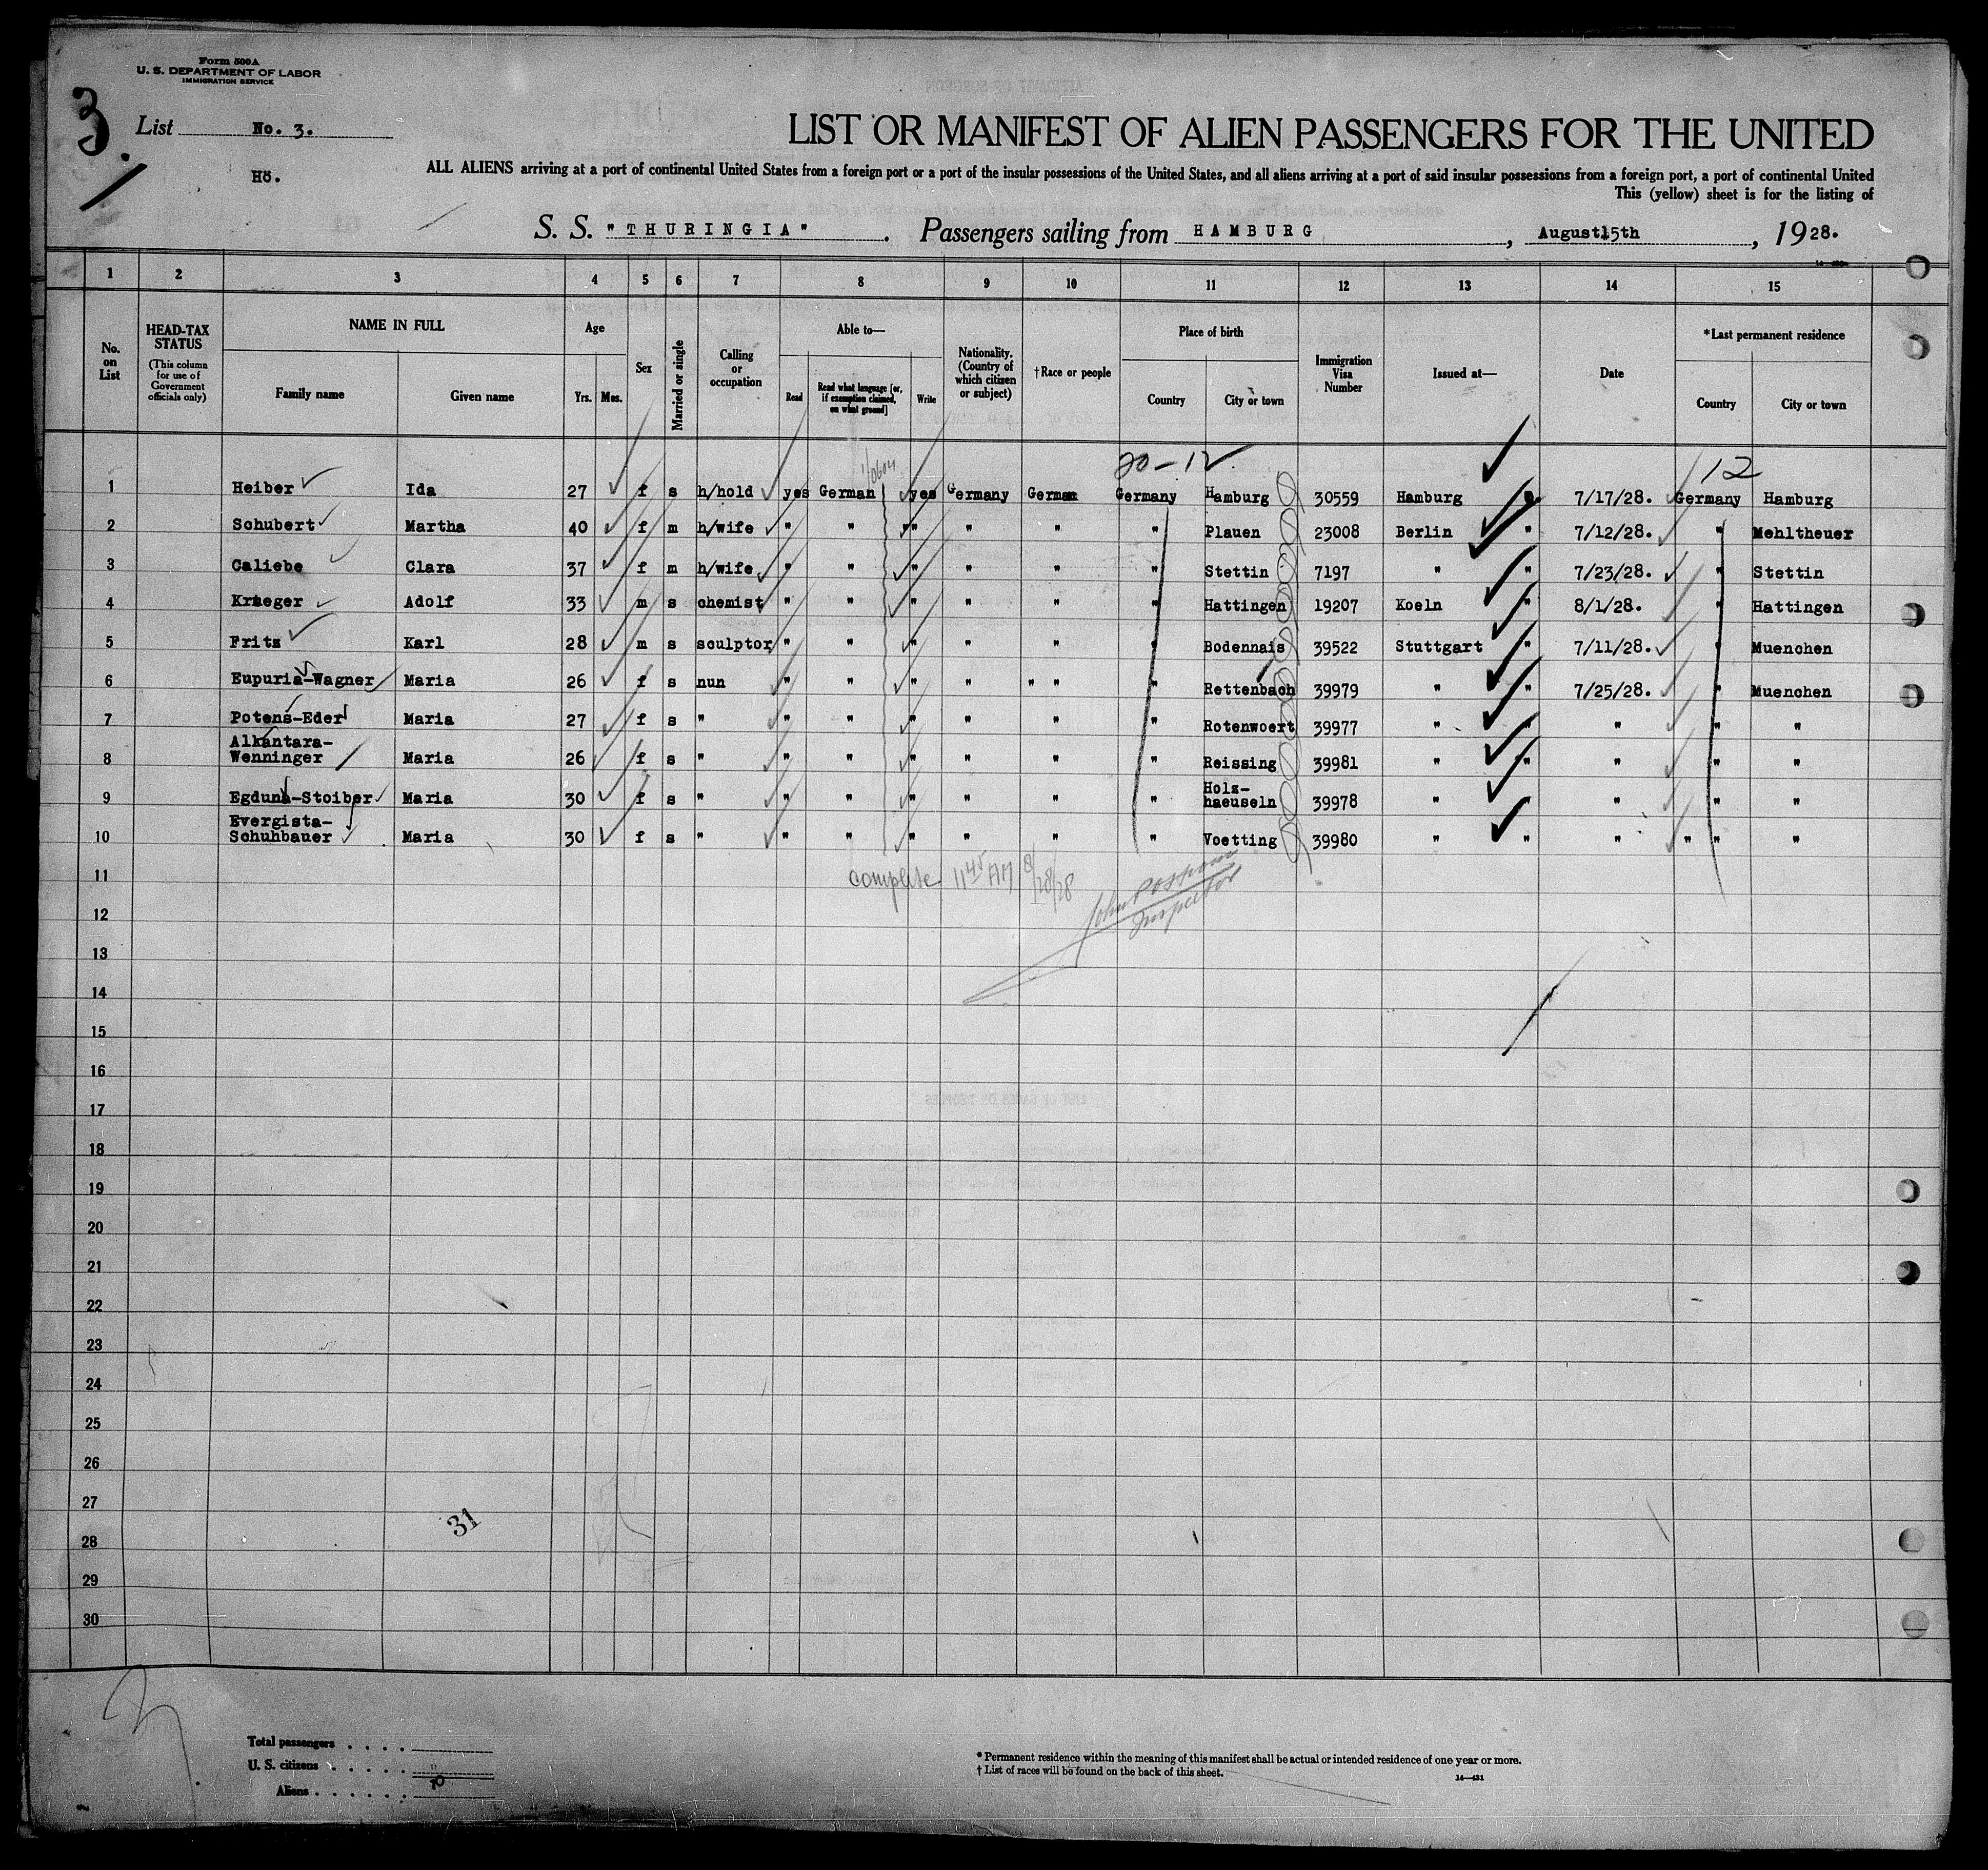 Form 500A
U. S. DEPARTMENT OF LABOR
IMMIGRATION SERVICE
3
List No. 3.
Hö.
LIST OR MANIFEST OF ALIEN PASSENGERS FOR THE UNITED
ALL ALIENS arriving at a port of continental United States from a foreign port or a port of the insular possessions of the United States, and all aliens arriving at a port of said insular possessions from a foreign port, a port of continental United
This (yellow) sheet is for the listing of
S. S. "THURINGIA". Passengers sailing from HAMBURG, August 15th, 1928.
1 2 3 4 5 6 7 8 9 10 11 12 13 14 15
No. on List
HEAD-TAX STATUS
(This column for use of Government officials only)
NAME IN FULL
Family name Given name
Age
Yrs. Mos.
Sex
Married or single
Calling or occupation
Able to—
Read
Read what language [or, if exemption claimed, on what ground]
Write
Nationality. (Country of which citizen or subject)
†Race or people
Place of birth
Country City or town
Immigration Visa Number
Issued at—
Date
*Last permanent residence
Country City or town
20-12 12
1 Heiber Ida 27 f s h/hold yes German yes Germany German Germany Hamburg 30559 Hamburg " 7/17/28. Germany Hamburg
2 Schubert Martha 40 f m h/wife " " " " " " Plauen 23008 Berlin " 7/12/28. " Mehltheuer
3 Caliebe Clara 37 f m h/wife " " " " " " Stettin 7197 " " 7/23/28. " Stettin
4 Krueger Adolf 33 m s chemist " " " " " " Hattingen 19207 Koeln " 8/1/28. " Hattingen
5 Fritz Karl 28 m s sculptor " " " " " " Bodennais 39522 Stuttgart " 7/11/28. " Muenchen
6 Eupuria-Wagner Maria 26 f s nun " " " " " " " Rettenbach 39979 " " 7/25/28. " Muenchen
7 Potens-Eder Maria 27 f s " " " " " " " Rotenwoert 39977 " " " " "
8 Alkantara-Wenninger Maria 26 f s " " " " " " " Reissing 39981 " " " " "
9 Egduna-Stoiber Maria 30 f s " " " " " " " Holz-haeuseln 39978 " " " " "
10 Evergista-Schuhbauer Maria 30 f s " " " " " " " Voetting 39980 " " " " " "
11 complete 11 45 AM 8/28/28
12 John
Inspector
13
14
15
16
17
18
19
20
21
22
23
24
25
26
27
31
28
29
30
Total passengers . . . .
U. S. citizens . . . . .
Aliens . . . . . . 10
* Permanent residence within the meaning of this manifest shall be actual or intended residence of one year or more.
† List of races will be found on the back of this sheet.
14—431